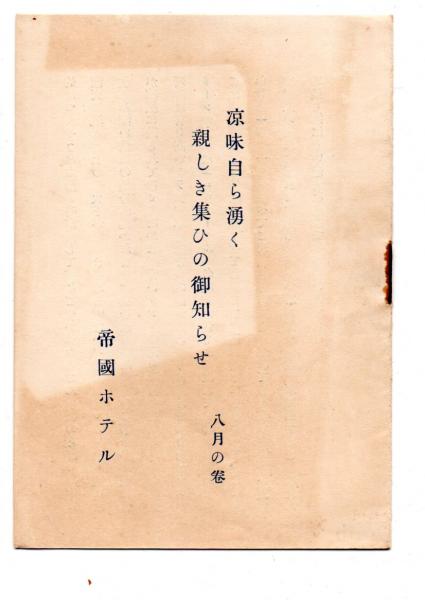 涼味自ら湧く
親しき集ひの御知らせ
八月の卷
帝國ホテル